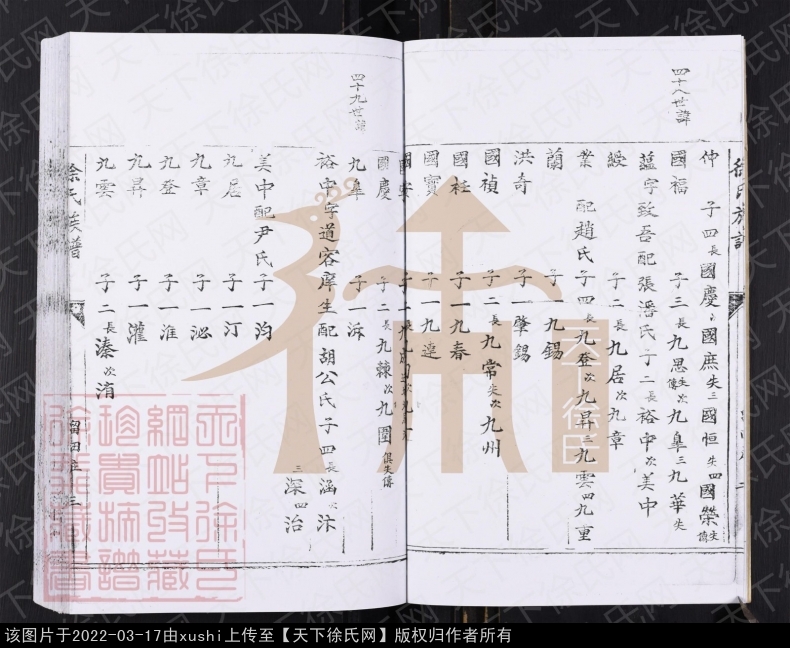 四十八世諱
仲 子四長國慶次國庶失三國恒失四國榮失傳
國福 子三長九思失傳次九皐三九華失
蘊字致吾配張潘氏子二長裕中次美中
綬 子二長九居次九章
業 配趙氏子四長九登次九昇三九雲四九重
蘭 子一九錫
洪奇 子一肇錫
國禎 子二長九常失次九州
國柱 子一九春
國寳 子一九逵
國慶 子二長九棘次九圍俱失傳
四十九世諱
九皐 子一泝
裕中字道容庠生配胡公氏子四長涵次汴
三深四治
美中配尹氏子一汮
九居 子一汀
九章 子一泌
九登 子一淮
九昇 子一灌
九雲 子二長溱次洧
徐氏族譜
留田庄
三
天下徐氏網站收藏珍貴極譜
该图片于2022-03-17由xushi上传至【天下徐氏网】版权归作者所有